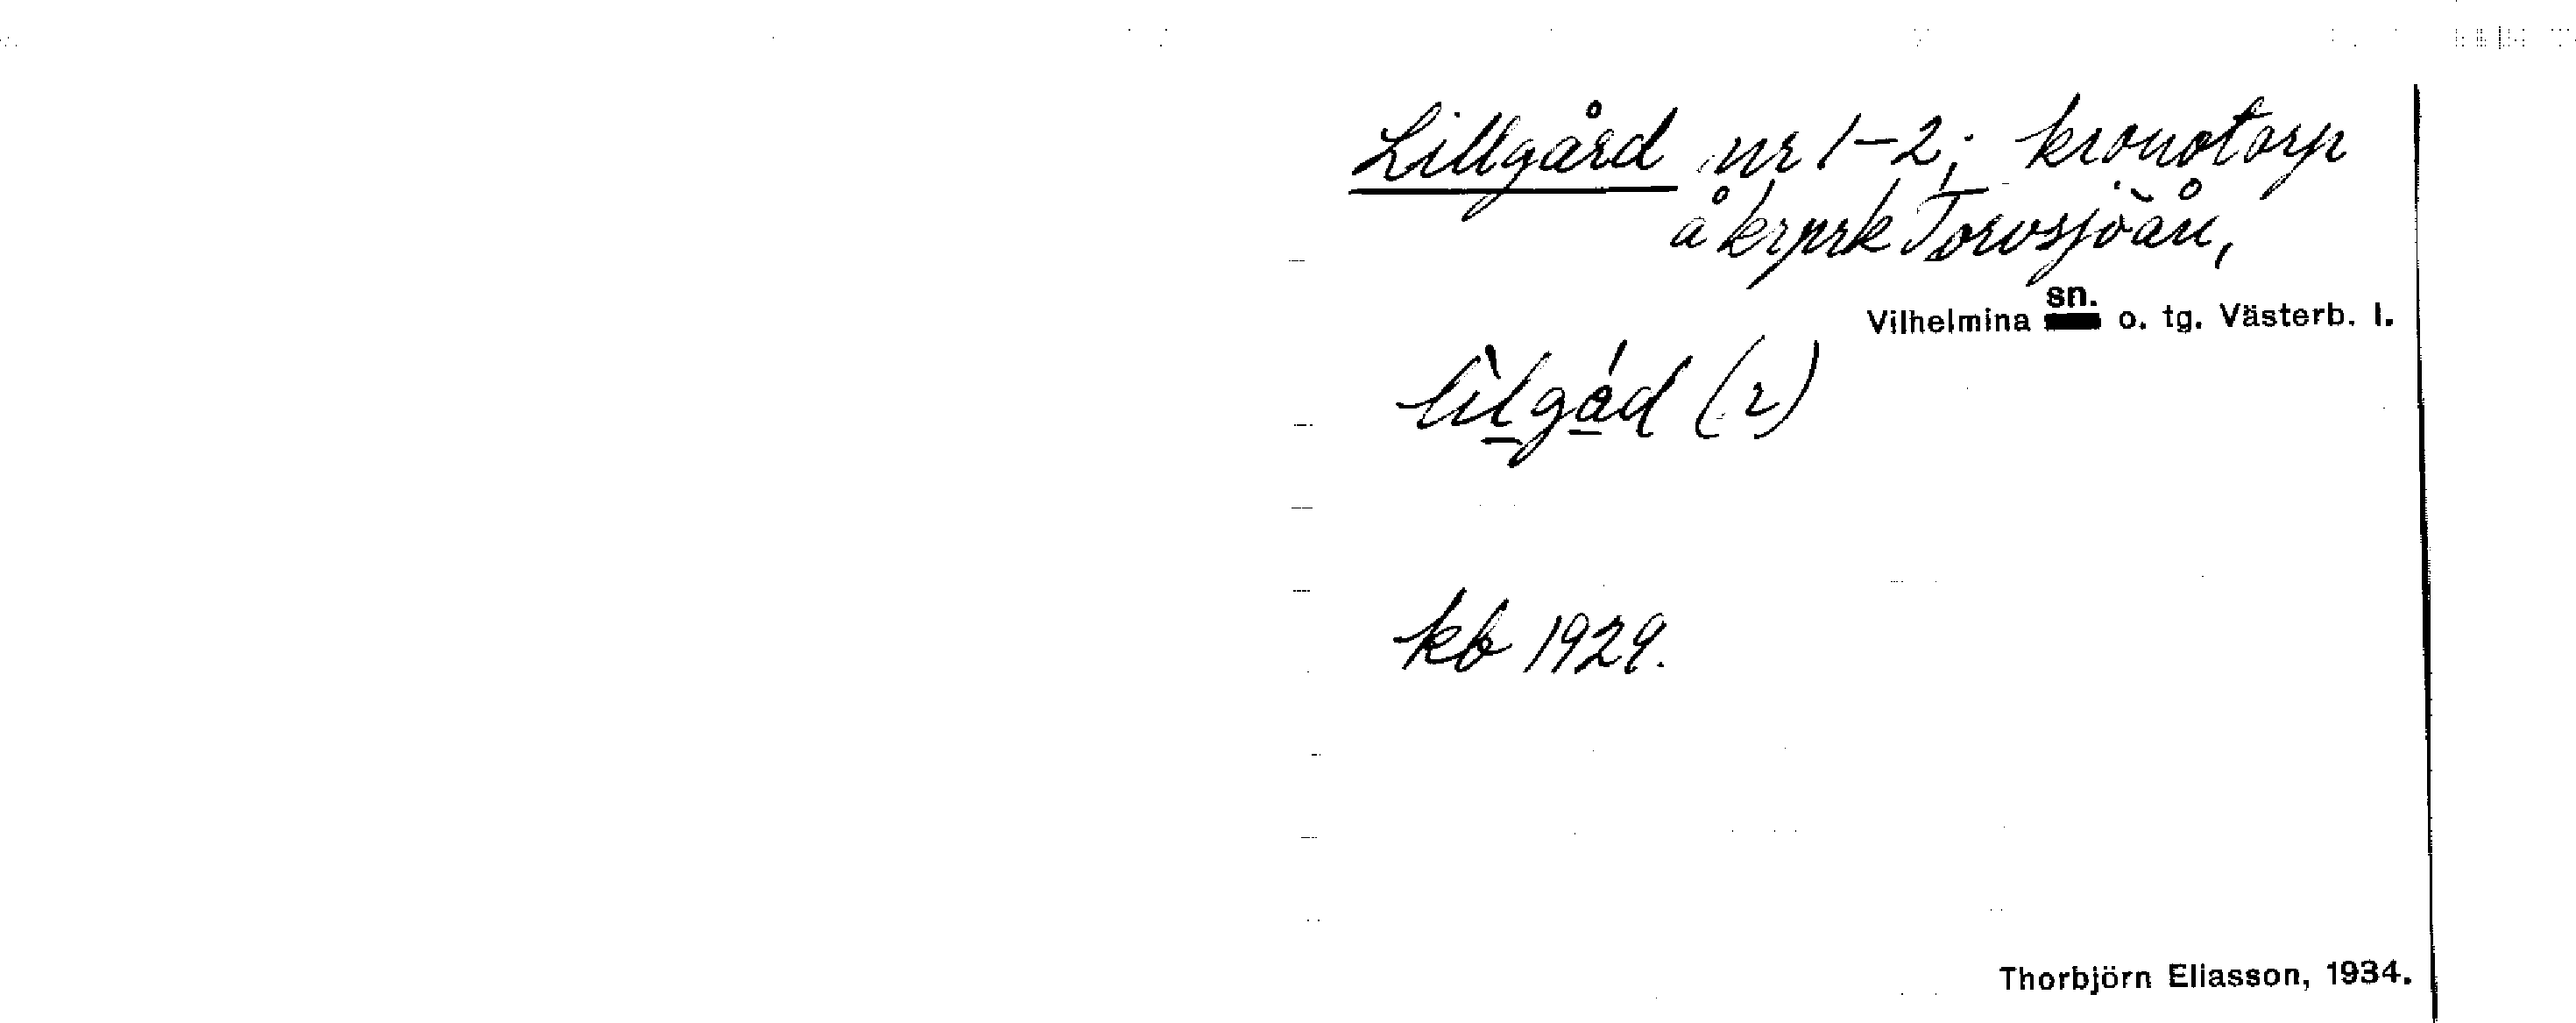 Lillgård nr 1-2; kronotorp
å krprk Torvsjöån,
Vilhelmina sn. o. tg. Västerb. l.
lìlgád (2)
kb 1929.
Thorbjörn Eliasson, 1934.